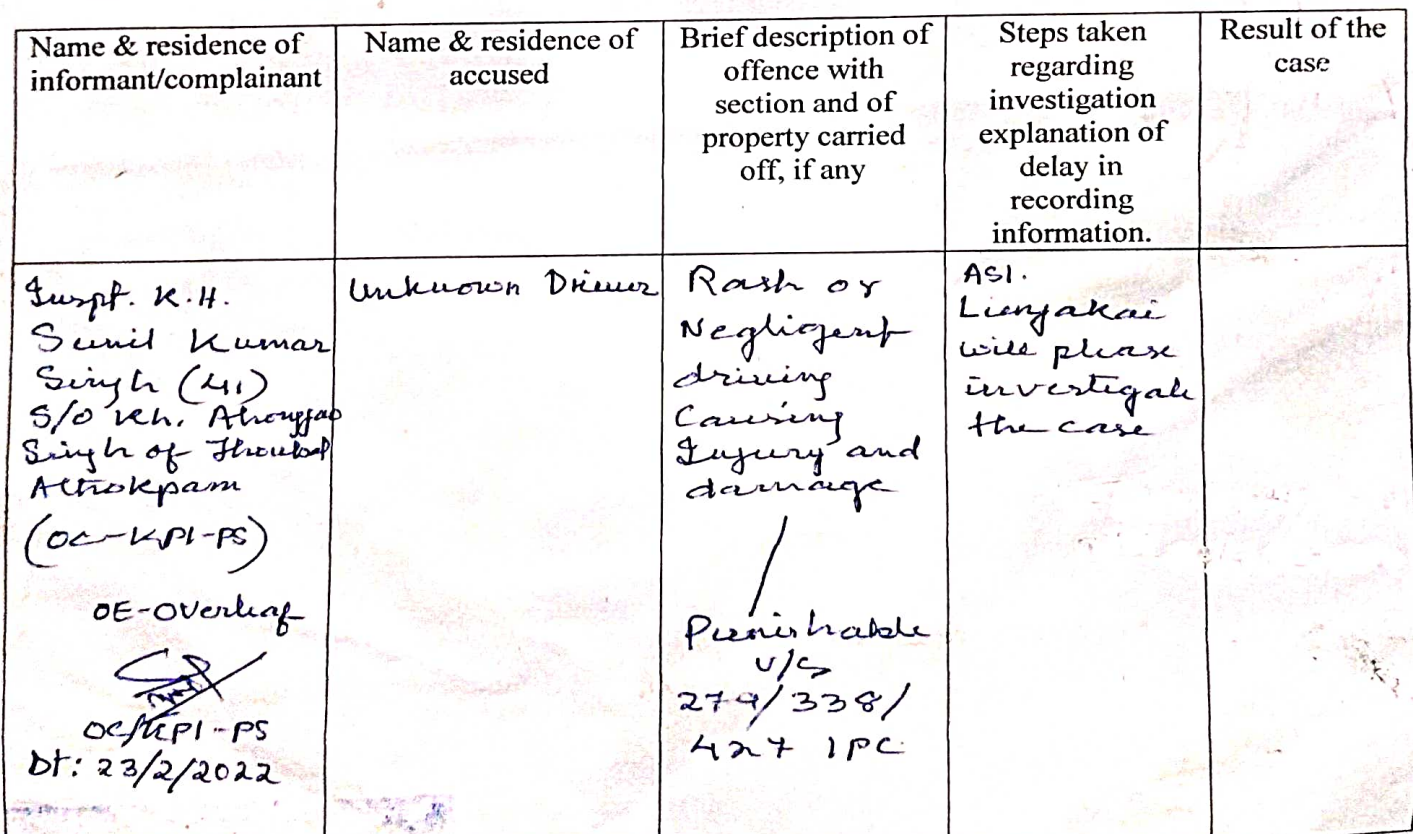 Name & residence of
informant/complainant
Name & residence of
accused
Brief description of
offence with
section and of
property carried
off, if any
Steps taken
regarding
investigation
explanation of
delay in
recording
information.
Result of the
case
Inspt. K.H.
Sunil Kumar
Singh (41)
S/O Kh.
Singh of Thoubal
Athokpam
(OC-KPI-PS)
OE-Overleaf
OC/KPI-PS
Dt: 23/2/2022
Unknown Driver
Rash or
Negligent
driving
Causing
Injury and
damage
Punishable
U/S
279/338/
427 IPC
ASI.
will please
investigate
the case